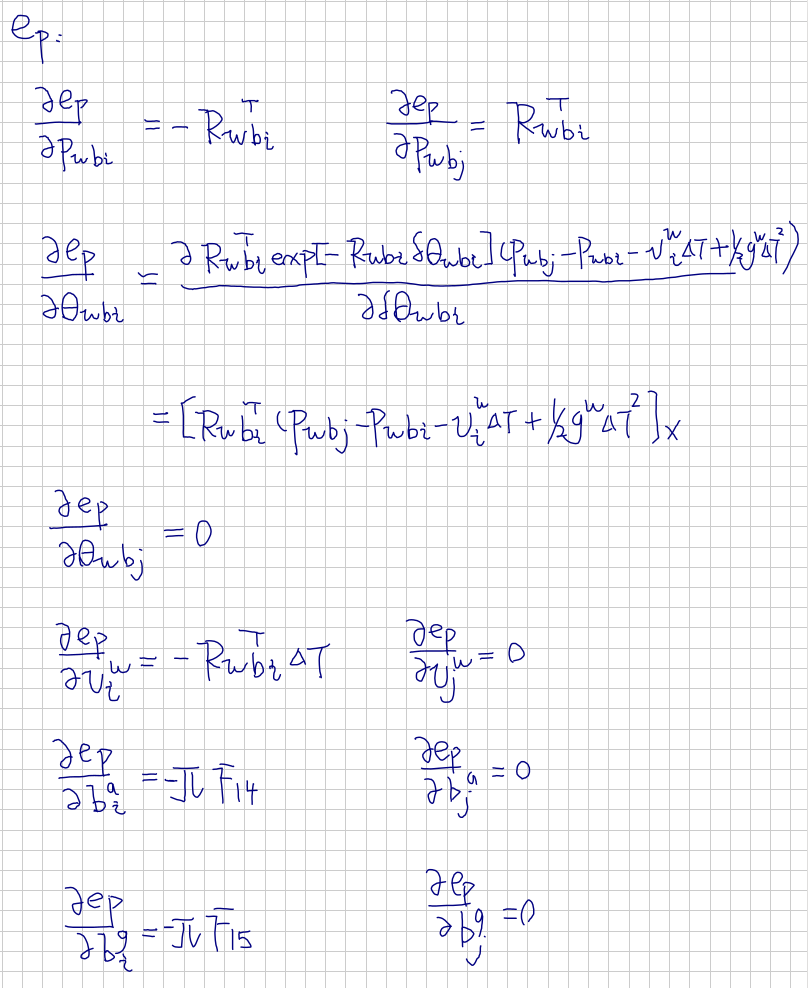 e_p:
∂e_p/∂p_{wbi} = -R_{wbi}^T    ∂e_p/∂p_{wbj} = R_{wbi}^T
∂e_p/∂θ_{wbi} = ∂R_{wbi}^T exp[-R_{wbi}δθ_{wbi}](p_{wbj}-p_{wbi}-v_i^wΔT+½g^wΔT^2)/∂δθ_{wbi}
= [R_{wbi}^T(p_{wbj}-p_{wbi}-v_i^wΔT+½g^wΔT^2]_×
∂e_p/∂θ_{wbj} = 0
∂e_p/∂v_i^w = -R_{wbi}^TΔT    ∂e_p/∂v_j^w = 0
∂e_p/∂b_i^a = -∏F_{14}    ∂e_p/∂b_j^a = 0
∂e_p/∂b_i^g = -∏F_{15}    ∂e_p/∂b_j^g = 0